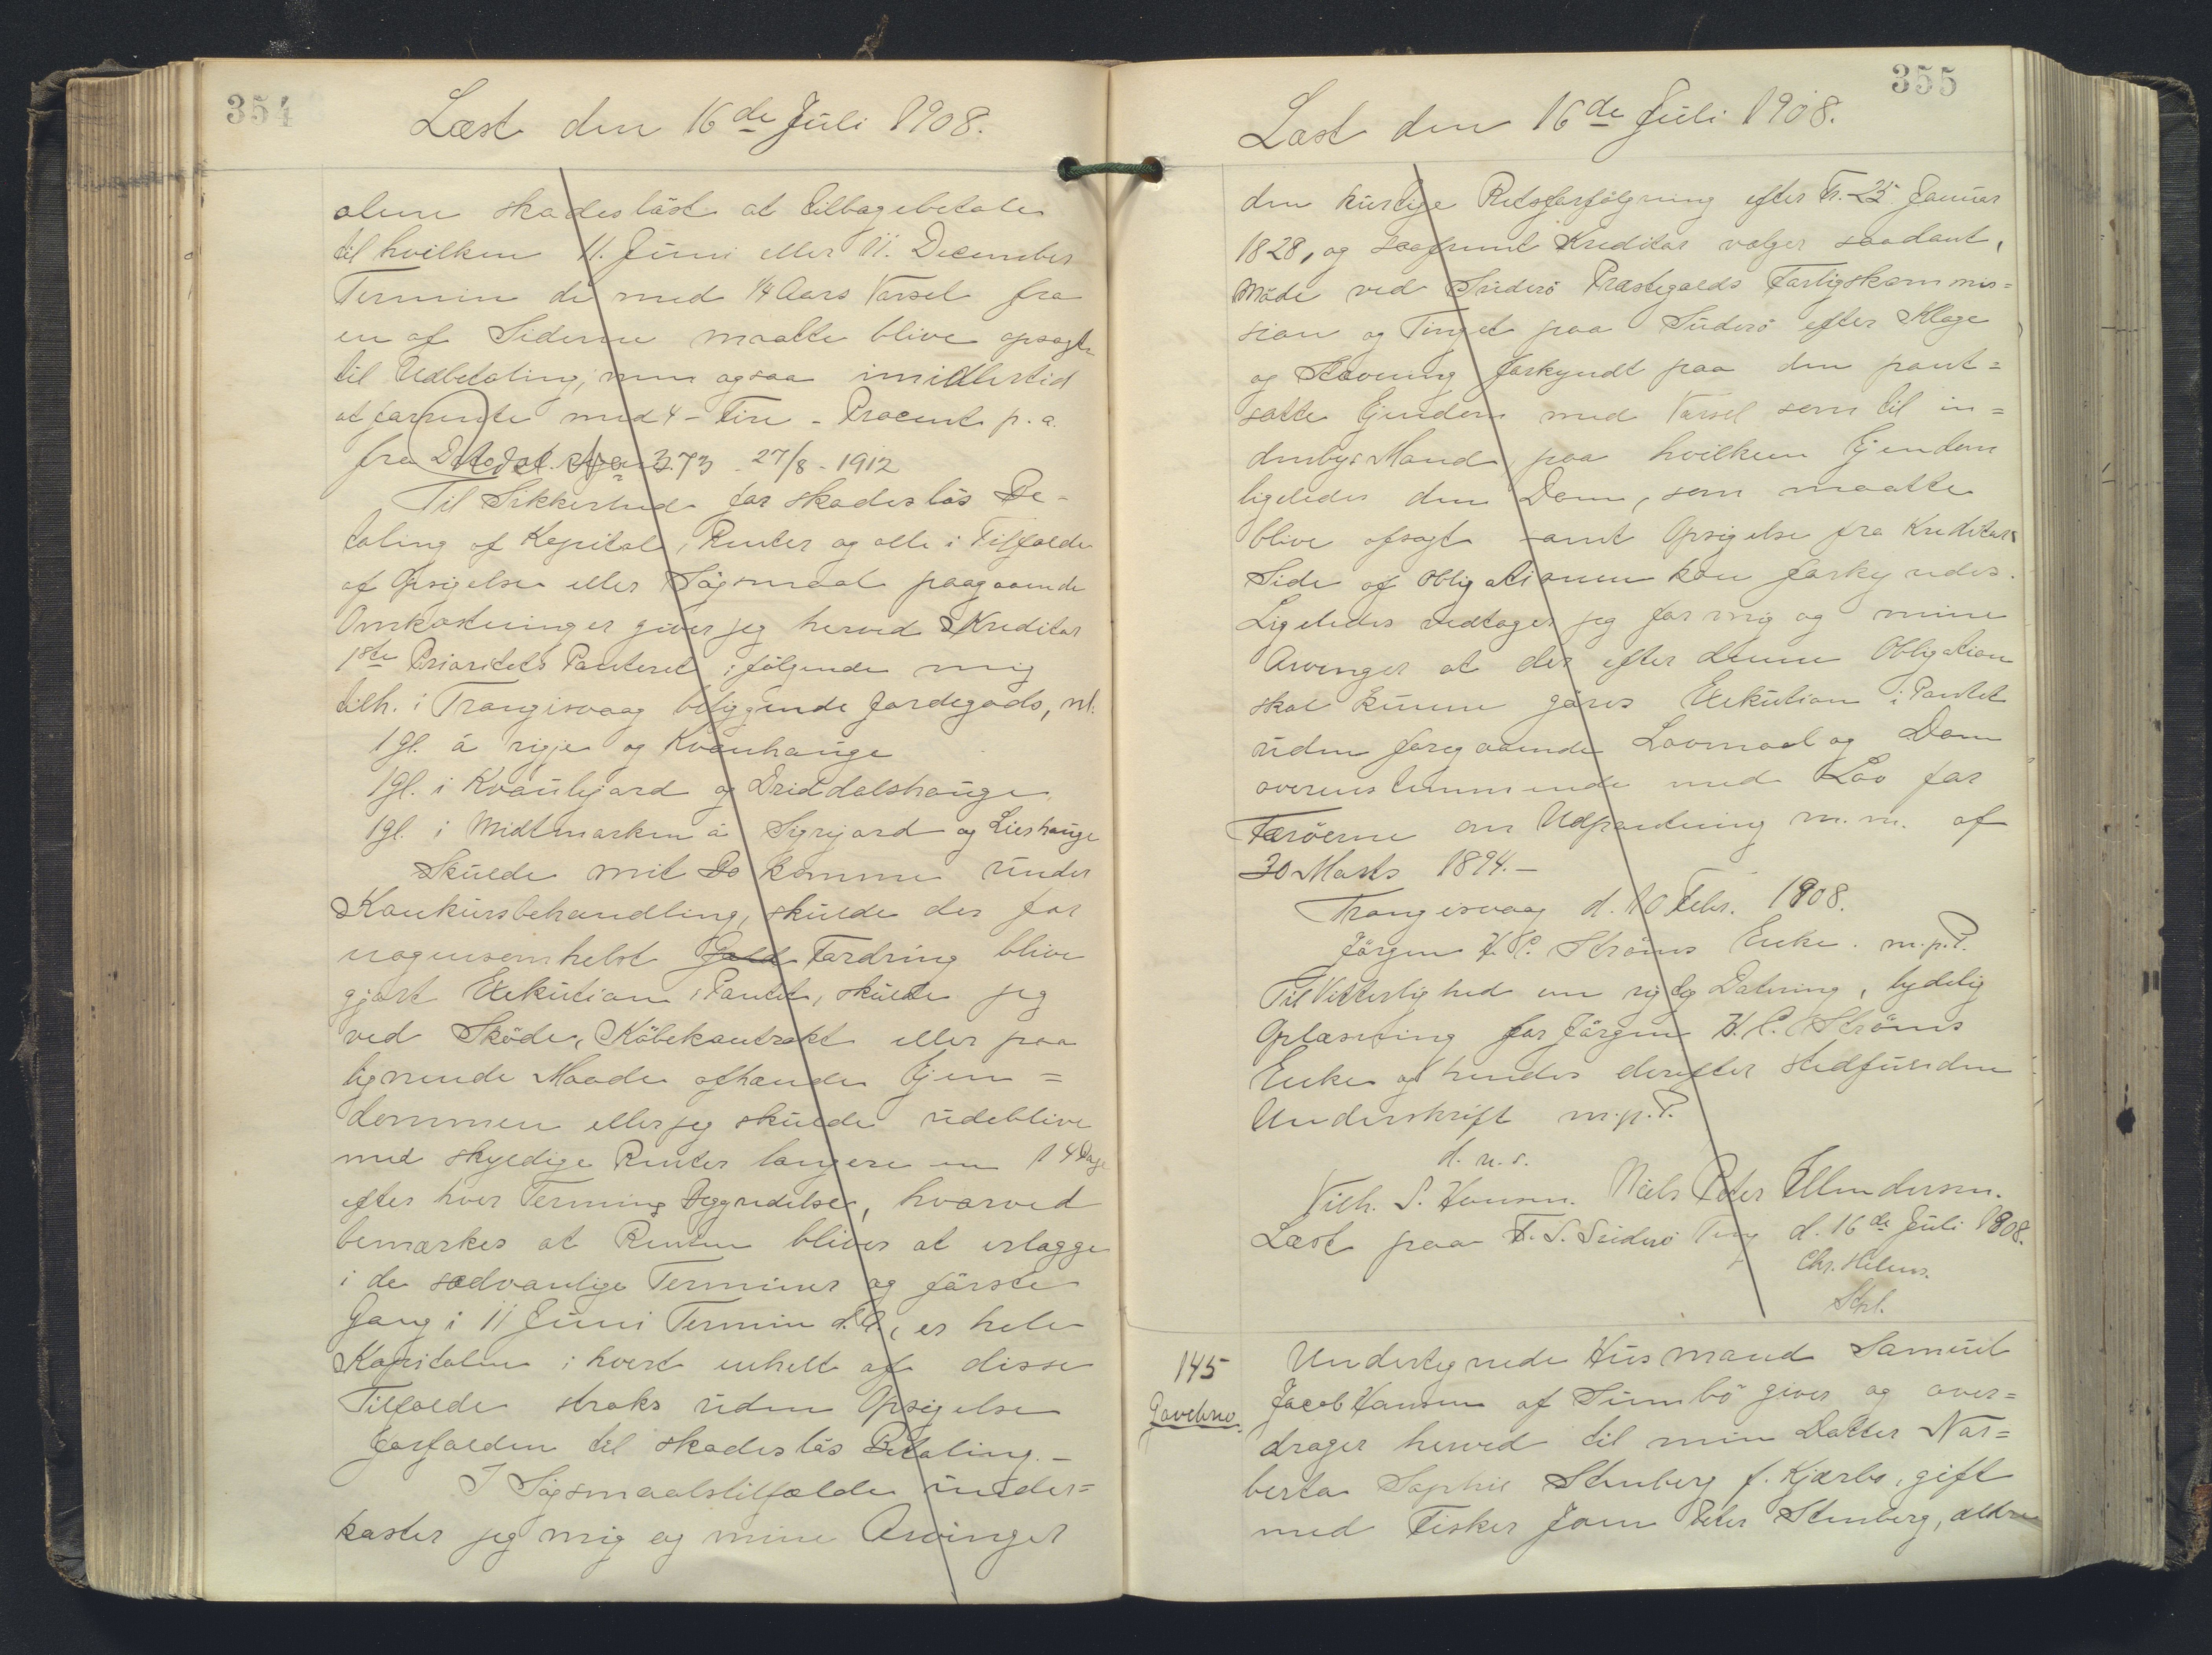 354
Læst den 16de Juli 1908.
alene skadesløst at tilbagebetale
til hvilken 11. Juni eller 11. December
Termin de med 1/4 Aars Varsel fra
en af Siderne maatte blive opsagt
til Udbetaling, men ogsaa imidlertid
at forrente med 4 - Fire - Procent p. a.
fra D 373 27/8 - 1912
Til Sikkerhed for skadesløs Be-
taling af Kapital, Renter og alle i Tilfælde
af Opsigelse eller Søgsmaal paagaaende
Omkostninger giver jeg herved Kreditor
1ste Prioritets Panteret i følgende mig
tilh. i Trangisvaag beliggende Jordegods, nl.
1 gl. á rigje og Kvanhauge
1 gl. i Kvanhejard og Driddalshauge
1 gl. i Midtmarken á Syrijard og Lieshauge
Skulde mit Bo komme under
Konkursbehandling, skulde der for
nogensomhelst Gæld Fordring blive
gjort Exekution i Pantet, skulde jeg
ved Skøde, Købekontrakt eller paa
lignende Maade afhænde Ejen=
dommen eller jeg skulde udeblive
med skyldige Renter længere en 14 Dage
efter hver Termins Begyndelse, hvorved
bemærkes at Renten bliver at erlægge
i de sædvanlige Terminer og første
Gang i 11 Juni Termin d. A., er hele
Kapitalen i hvert enkelt af disse
Tilfælde straks uden Opsigelse
forfalden til skadesløs Betaling. -
I Søgsmaalstilfælde under=
kaster jeg mig og mine Arvinger
355
Læst den 16de Juli 1908.
den hurtige Retsforfølgning efter Fr. 25 Januar
1828, og saafremt Kreditor vælger saadant,
Møde ved Suderø Præstegjælds Forligskommis=
sion og Tinget paa Suderø efter Klage
og Stævning forkyndt paa den pant=
satte Ejendom med Varsel som til in=
denbys Mand paa hvilken Ejendom
ligeledes den Dom, som maatte
blive afsagt samt Opsigelse fra Kreditors
Side af Obligationen kan forkyndes.
Ligeledes vedtager jeg for mig og mine
Arvinger at der efter denne Obligation
skal kunne gøres Exekution i Pantet
uden foregaaende Lovmaal og Dom
overenstemmende med Lov for
Færøerne om Udpantning m. m. af
30 Marts 1894. -
Trangisvaag d. 10 Febr. 1908.
Jörgen H. P. Ströms Enke. m. p. P.
Til Vitterlighed om rigtig Datering, tydelig
Oplæsning for Jörgen H. P. Ströms
Enke og hendes derefter stedfundne
Underskrift m. p. P.
d. u. s.
Vilh. S. Hansen. Niels Peter Ellendersen.
Læst paa F. S. Suderø Ting d. 16de Juli 1908.
Chr. Hilms.
Skrl.
145
Gavebrev.
Undertegnede Husmand Samuel
Jacob Hansen af Sumbø giver og over=
drager herved til min Datter Nor=
berta Sophie Stenberg f. Kjærbo, gift
med Fisker Joen Peter Stenberg, ældre